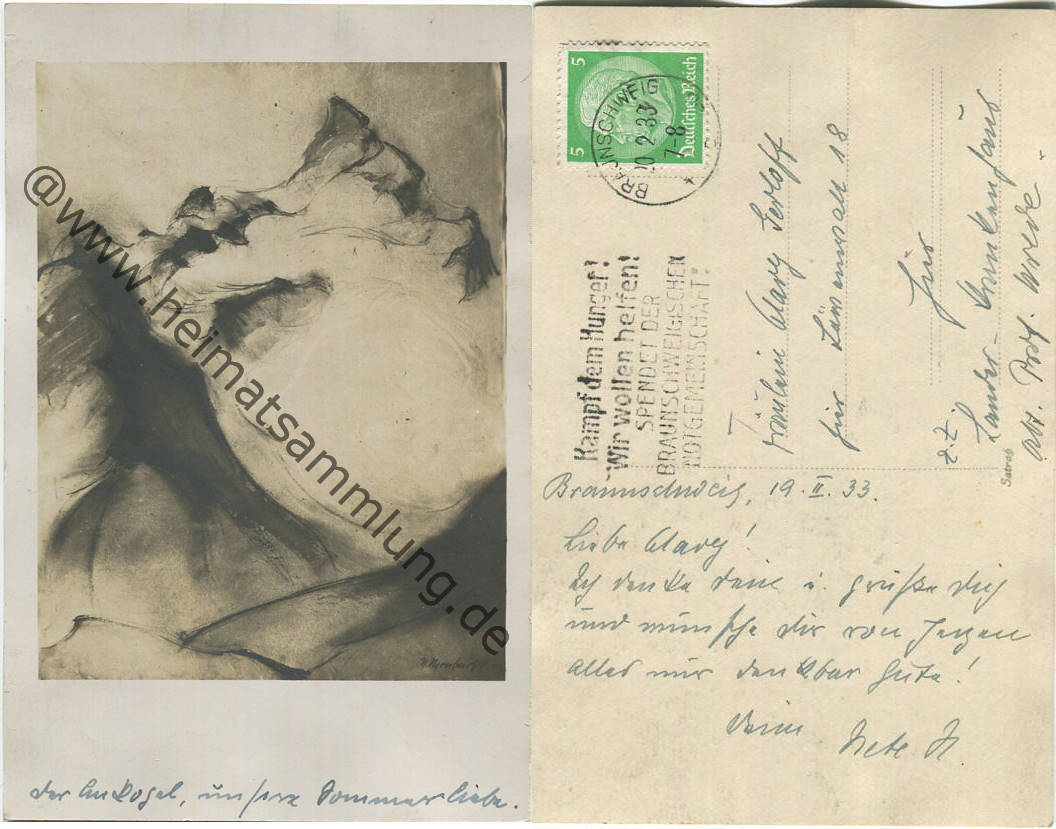 @www.heimatsammlung.de
der Ankogel, unsere Sommerliebe.
5 5
Deutsches Reich
BRAUNSCHWEIG
20.2.33
7-8
Kampf dem Hunger!
Wir wollen helfen!
SPENDET DER
BRAUNSCHWEIGISCHEN
NOTGEMEINSCHAFT.
Fräulein Clary Gerloff
hier
z.Z. hier
Landes-Krankenhaus
Abt. Prof. Wrede
Satrap
Braunschweig, 19.II.33.
Liebe Clary!
Ich denke Dein u. grüße Dich
und wünsche Dir von Herzen
alles nur denkbar Gute!
Deine